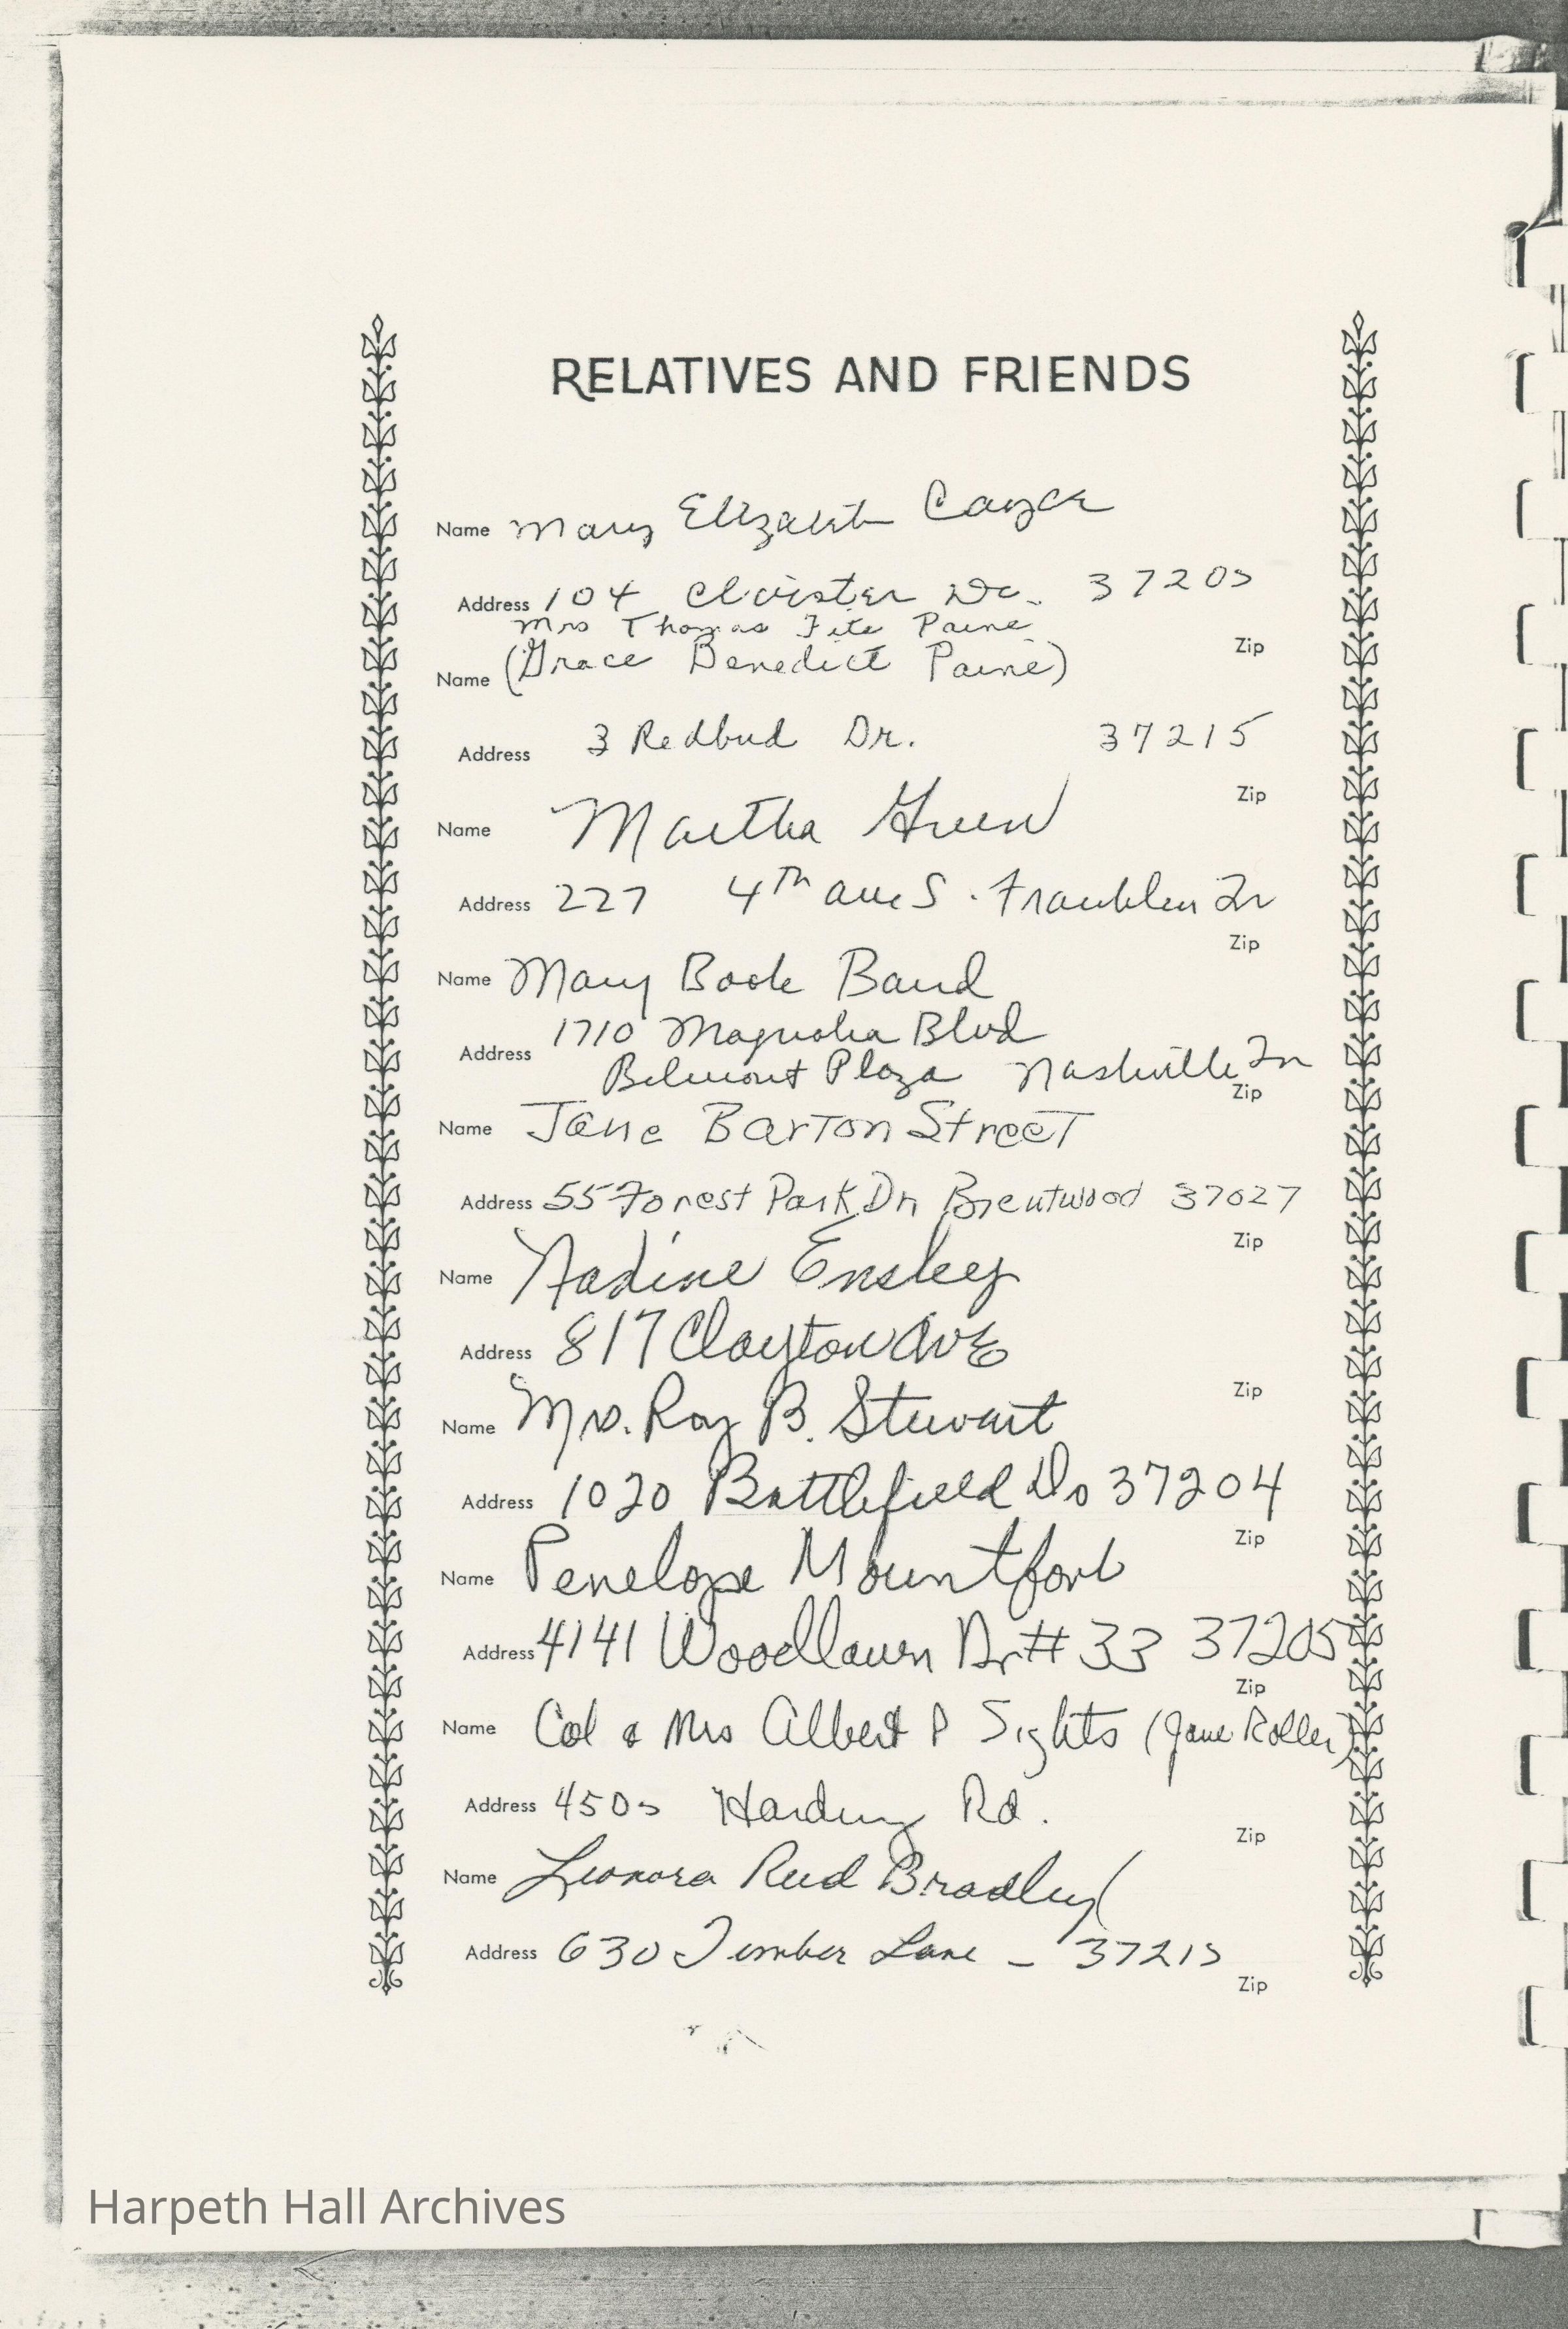 RELATIVES AND FRIENDS
Name Mary Elizabeth Cayce
Address 104 Cloister Dr. 37205
Mrs Thomas Fite Paine
Zip
Name (Grace Benedict Paine)
Address 3 Redbud Dr. 37215
Zip
Name Martha Green
Address 227 4th ave S. Franklin Tn
Zip
Name Mary Book Band
1710 Magnolia Blvd
Address
Belmont Plaza Nashville Tn
Zip
Name Jane Barton Street
Address 55 Forest Park Dr Brentwood 37027
Zip
Name Nadine Ensley
Address 817 Clayton Ave
Zip
Name Mrs. Roy B. Stewart
Address 1020 Battlefield Dr 37204
Zip
Name Penelope Mountfort
Address 4141 Woodlawn Dr # 33 37205
Zip
Name Col & Mrs Albert P Sights (Jane Roller)
Address 4505 Harding Rd.
Zip
Name Leonora Reed Bradley
Address 630 Timber Lane - 37215
Zip
Harpeth Hall Archives